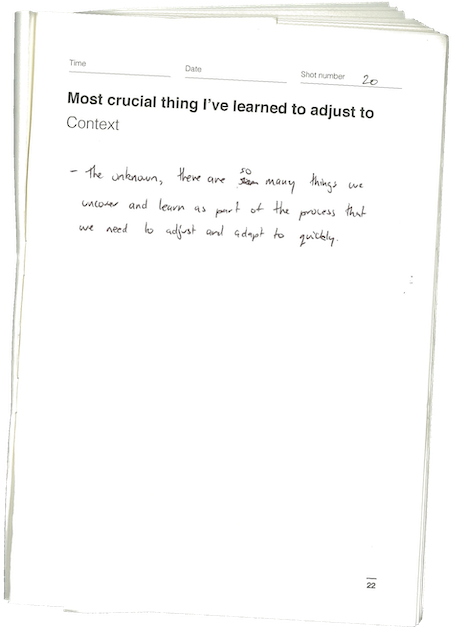 Time
Date
Shot number 20
Most crucial thing I've learned to adjust to
Context
- The unknown, there are so many things we
uncover and learn as part of the process that
we need to adjust and adapt to quickly.
22